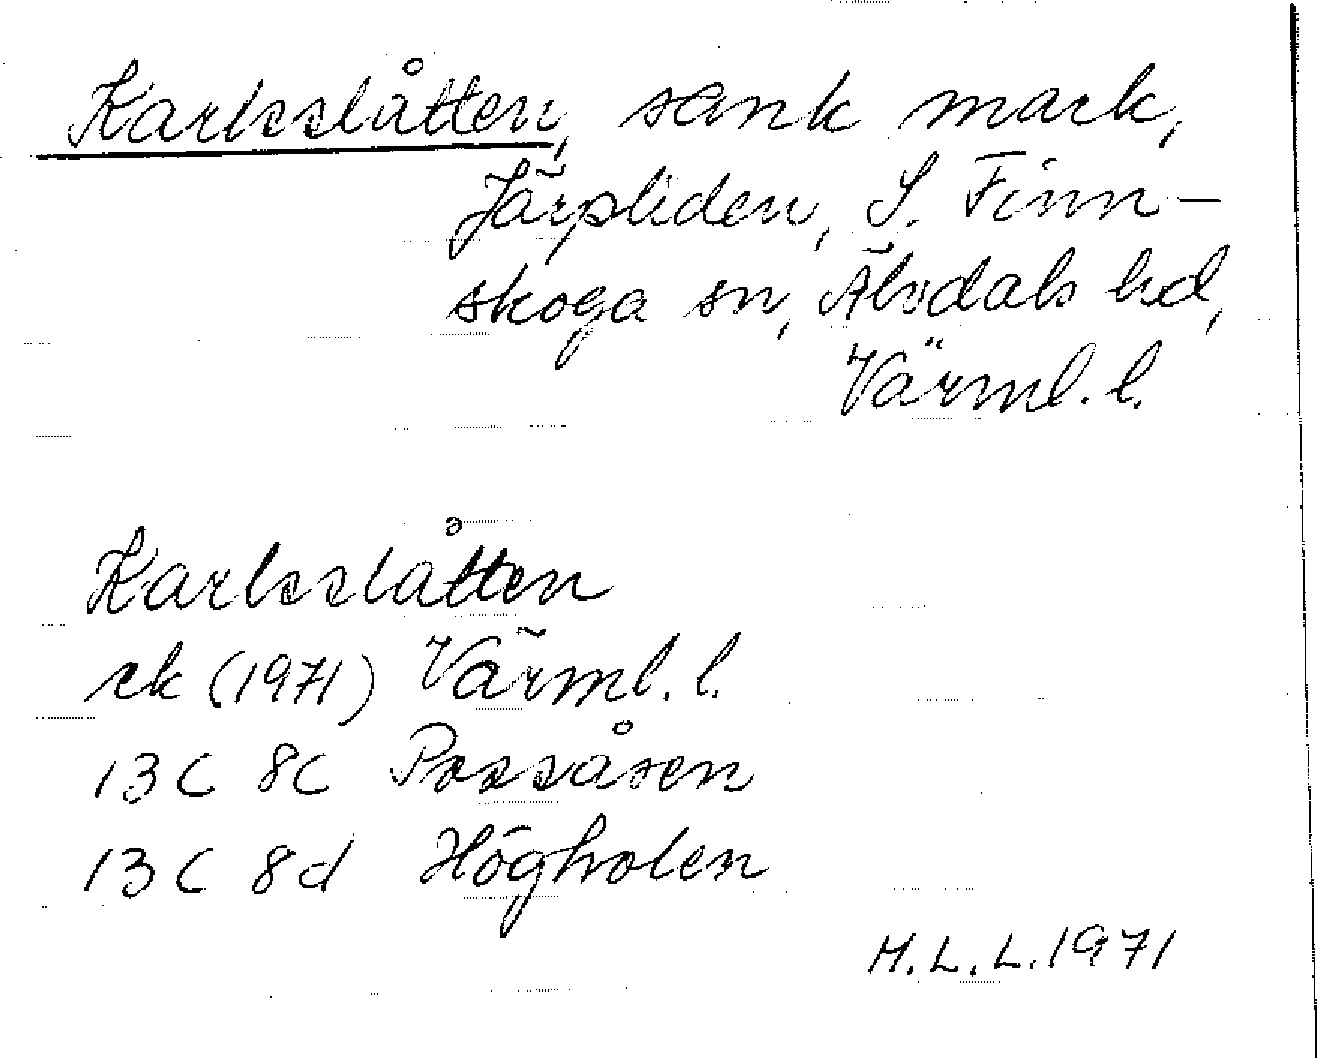 Karlsslåtten, sank mark,
Järpliden, S. Finn-
skoga sn, Älvdals hd,
Värml. l.
Karlsslåtten
ek (1971) Värml. l.
13C 8C Possåsen
13C 8d Högholen
M.L.L. 1971